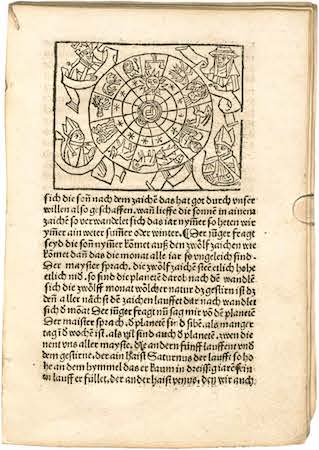 sich die soñ nach dem zaichẽ das hat got durch vnser
willen also geschaffen. wañ lieffe die sonne in ainem
zaichẽ so verwandlet sich das iar nym̃er so heten wir
ym̃er ain weter sum̃er oder winter. Der jũger fragt
seyd die son nym̃er kömet auß den zwölf zaichen wie
kömet dañ das die monat alle iar so vngleich sind.
Der mayster sprach, die zwölf zaichẽ steẽ etlich hohe
etlich nid. so sind die planetẽ darob nach dẽ wandlẽ
sich die zwölff monat wölcher natur dz gestirn ist dz
deñ aller nächst dẽ zaichen lauffet dar nach wandlet
sich d monat. Der jũger fragt nũ sag mir võ dẽ planetẽ
Der maister sprach. d planetẽ sind sibẽ. als manger
tag ĩ d wochẽ ist. als vil sind auch d planetẽ. zwen die
nent vns aller mayste. die andern fünff lauffent vnd
dem gestirne. der ain haist Saturnus der laufft so ho
he an dem hymmel das er kaum in dreissig iarẽ sein
en lauff er füllet. der ander haist venus. dem wir auch